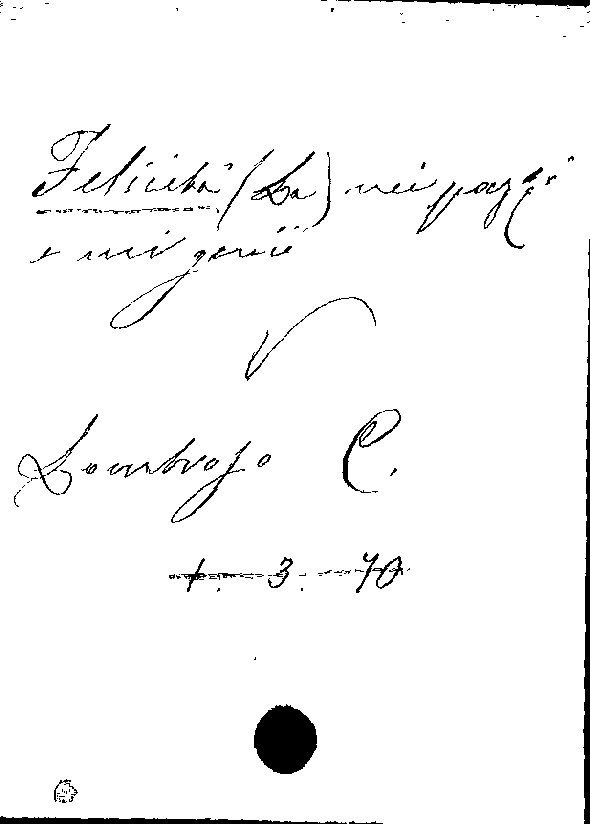 Felicità (La) nei pazzi
e nei genii
V
Lombroso C.
1. 3. 40